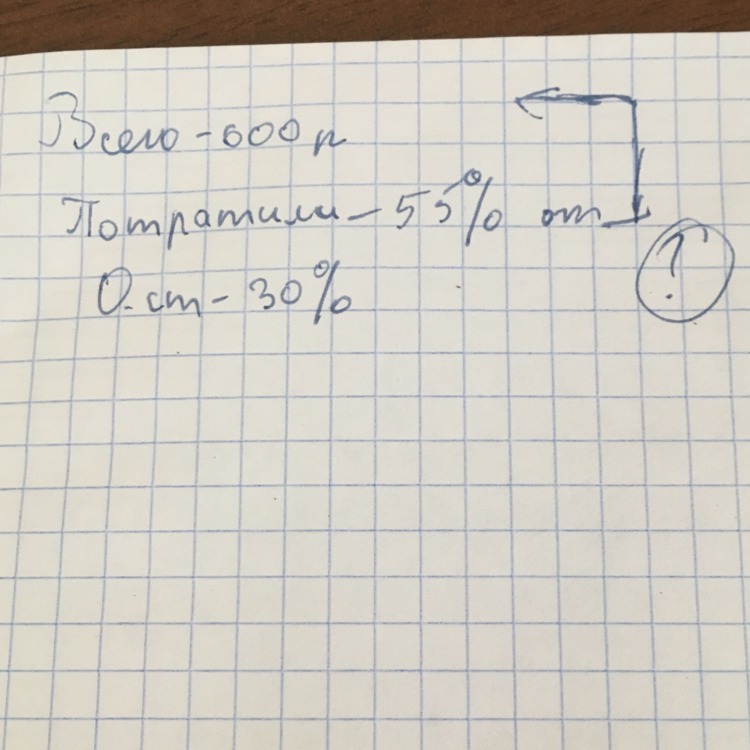 Всего - 600 р
Потратили - 55% от
Ост - 30%
?